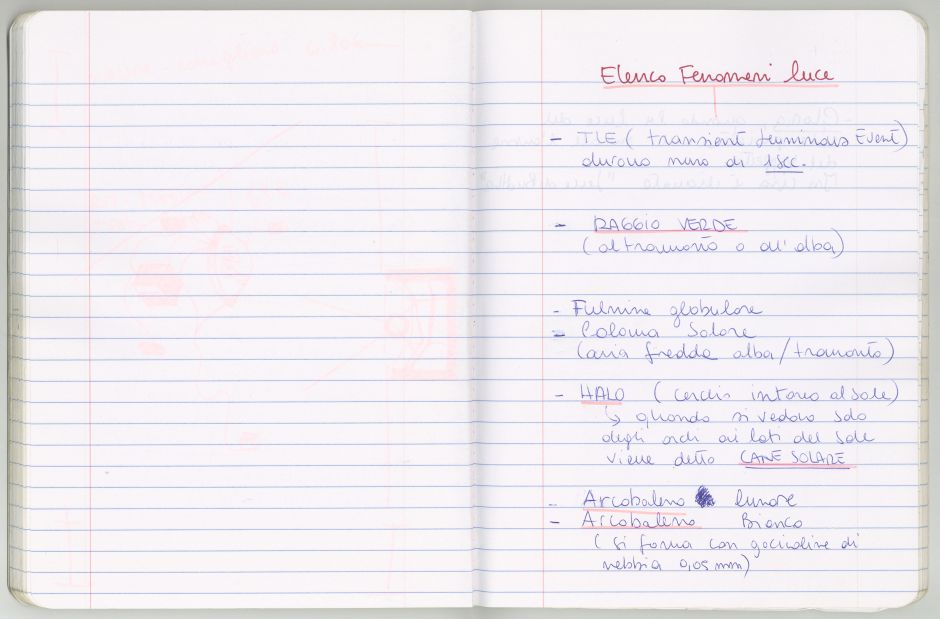 Elenco Fenomeni luce
- TLE ( transient luminous Event)
durono meno di 1 sec.
- RAGGIO VERDE
(al tramonto o all'alba)
- Fulmine globulare
- Colonna Solare
(aria fredda alba/tramonto)
- HALO ( cerchio intorno al sole)
↳ quando si vedono solo
degli archi ai lati del Sole
viene detto CANE SOLARE
- Arcobaleno lunare
- Arcobaleno Bianco
( si forma con goccioline di
nebbia 0,05 mm)